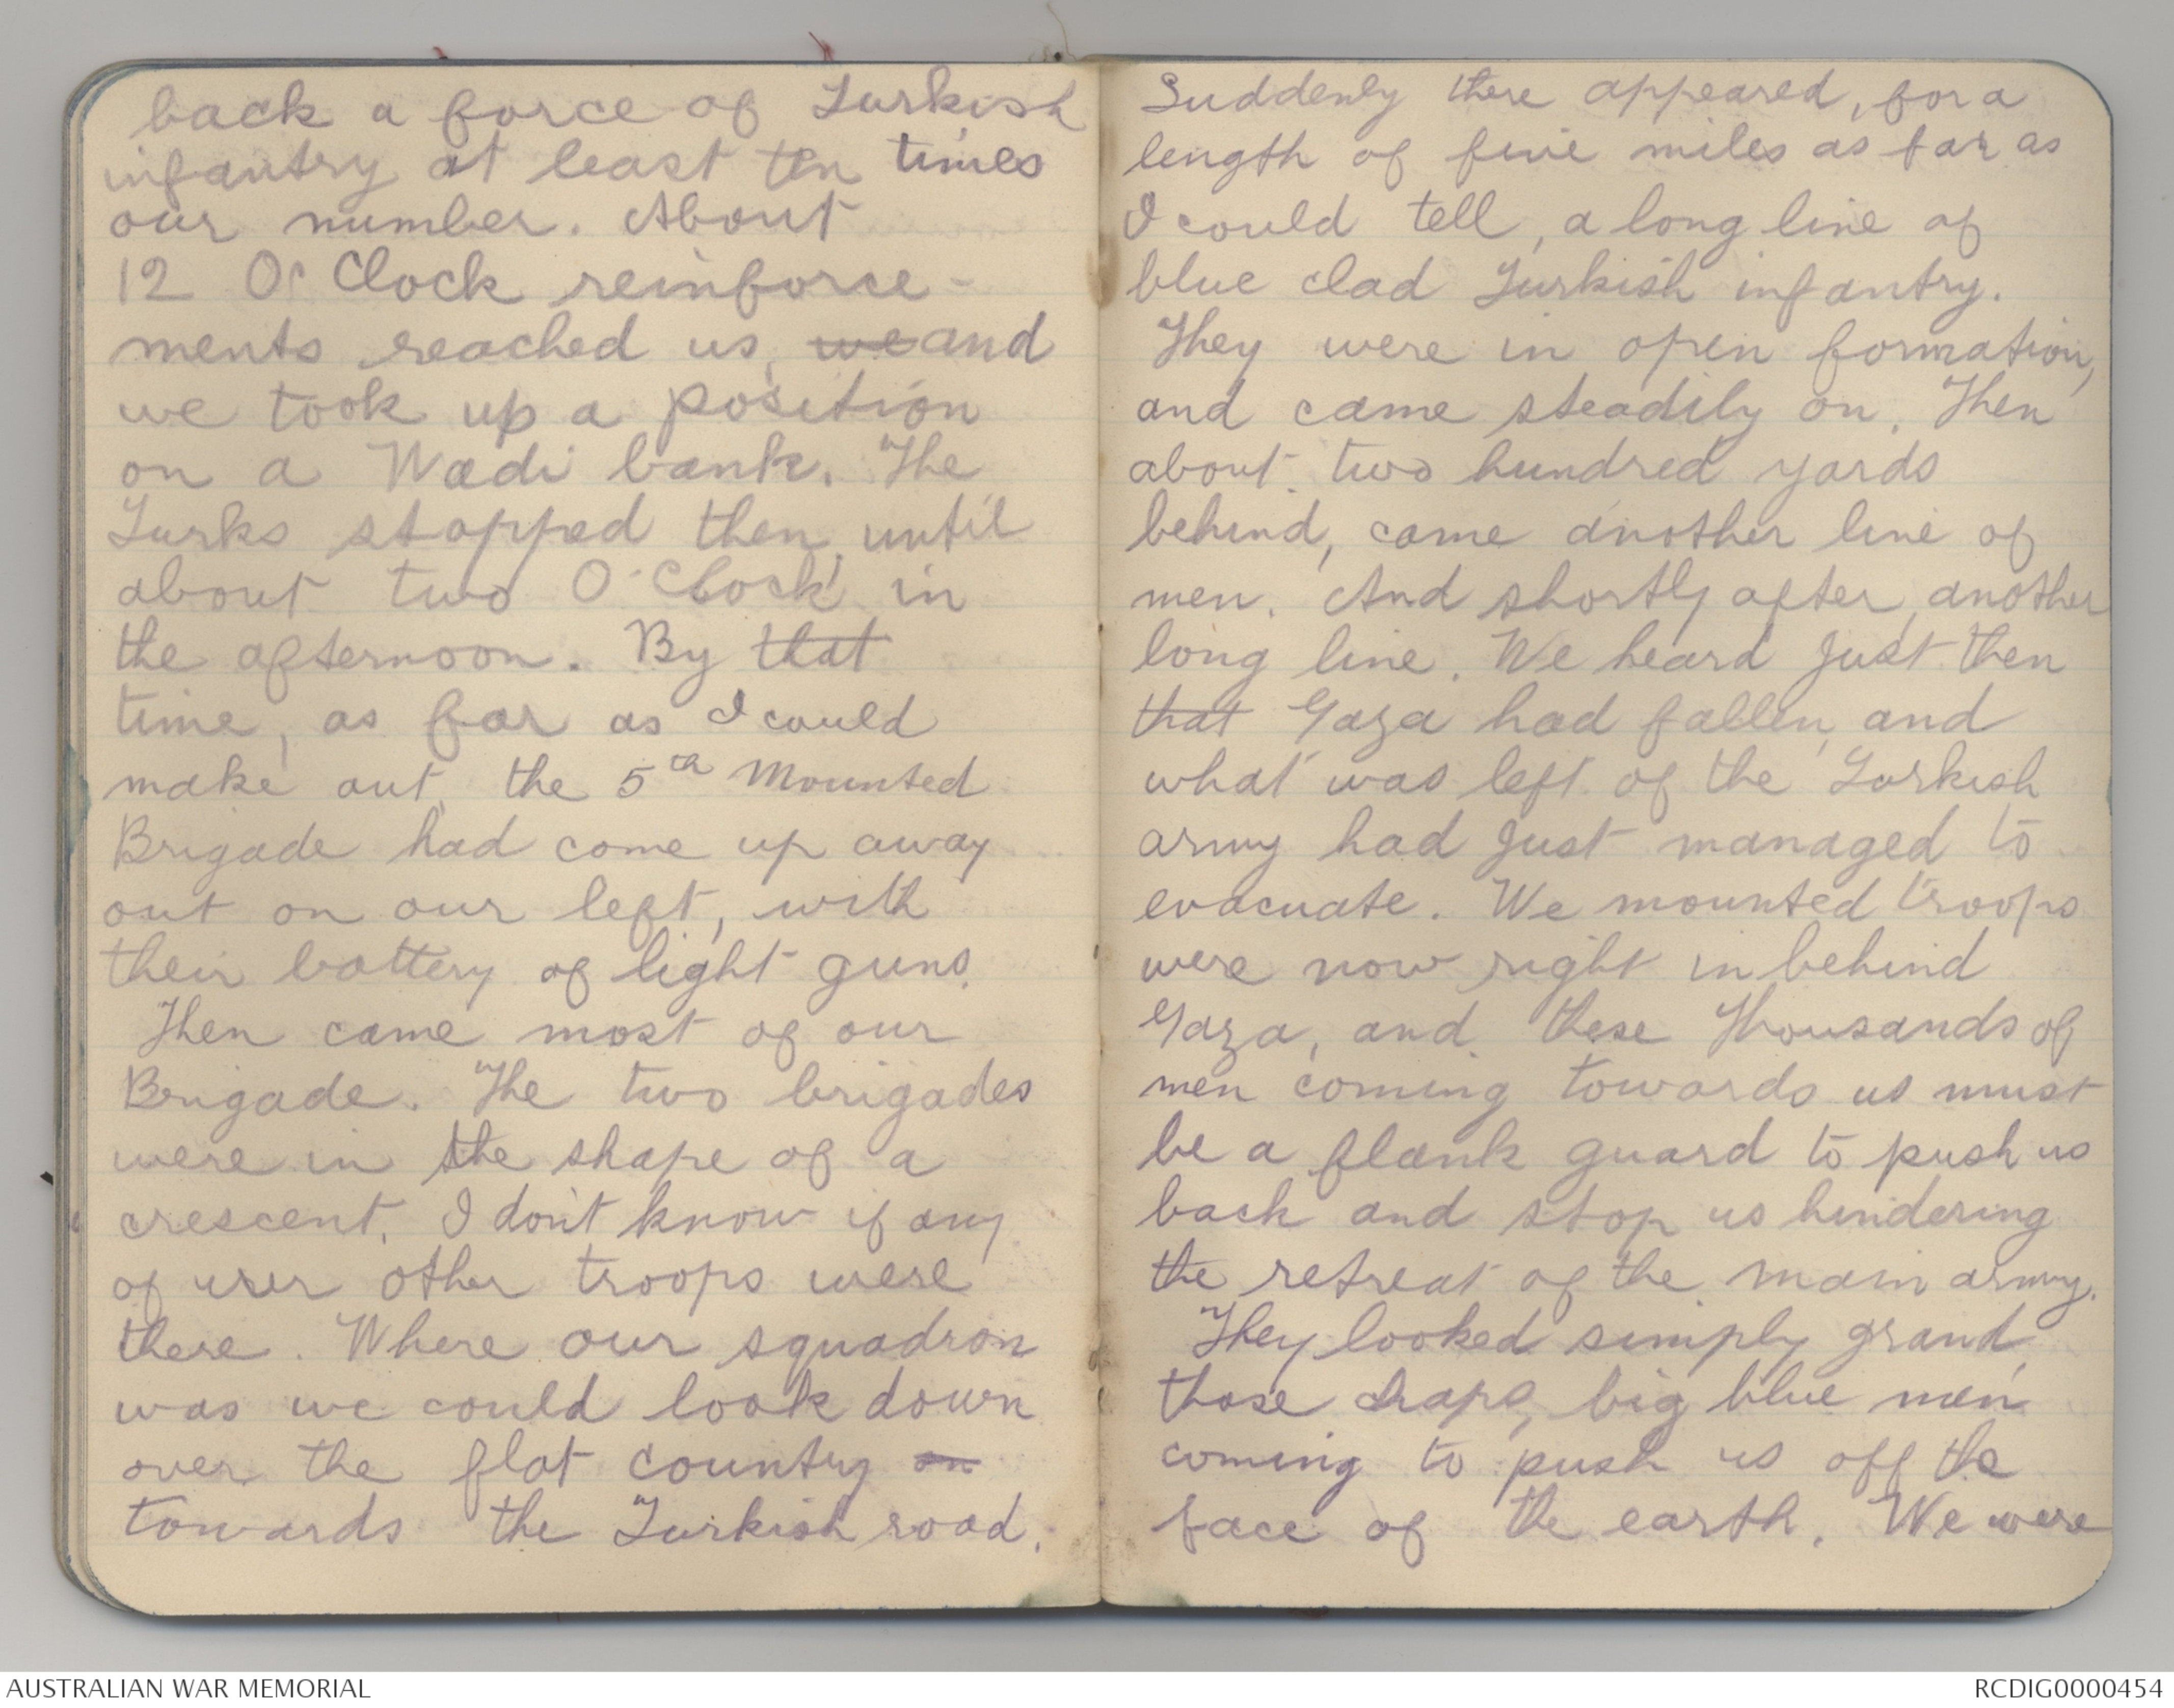 back a force of Turkish
infantry at least ten times
our number. About
12 O'Clock reinforce-
ments reached us, we and
we took up a position
on a Wadi bank. The
Turks stopped then, until
about two O'Clock in
the afternoon. By that
time, as far as I could
make out, the 5th Mounted
Brigade had come up away
out on our left, with
their battery of light guns.
Then came most of our
Brigade. The two brigades
were in the shape of a
crescent. I don't know if any
of other troops were
there. Where our squadron
was we could look down
over the flat country on
towards the Turkish road.
Suddenly there appeared, for a
length of five miles as far as
I could tell, a long line of
blue clad Turkish infantry.
They were in open formation,
and came steadily on. Then
about two hundred yards
behind, came another line of
men. And shortly after, another
long line. We heard just then
that Gaza had fallen, and
what was left of the Turkish
army had just managed to
evacuate. We mounted troops
were now right in behind
Gaza, and these thousands of
men coming towards us must
be a flank guard to push us
back and stop us hindering
the retreat of the main army.
They looked simply grand,
those chaps, big blue men
coming to push us off the
face of the earth. We were
AUSTRALIAN WAR MEMORIAL
RCDIG0000454